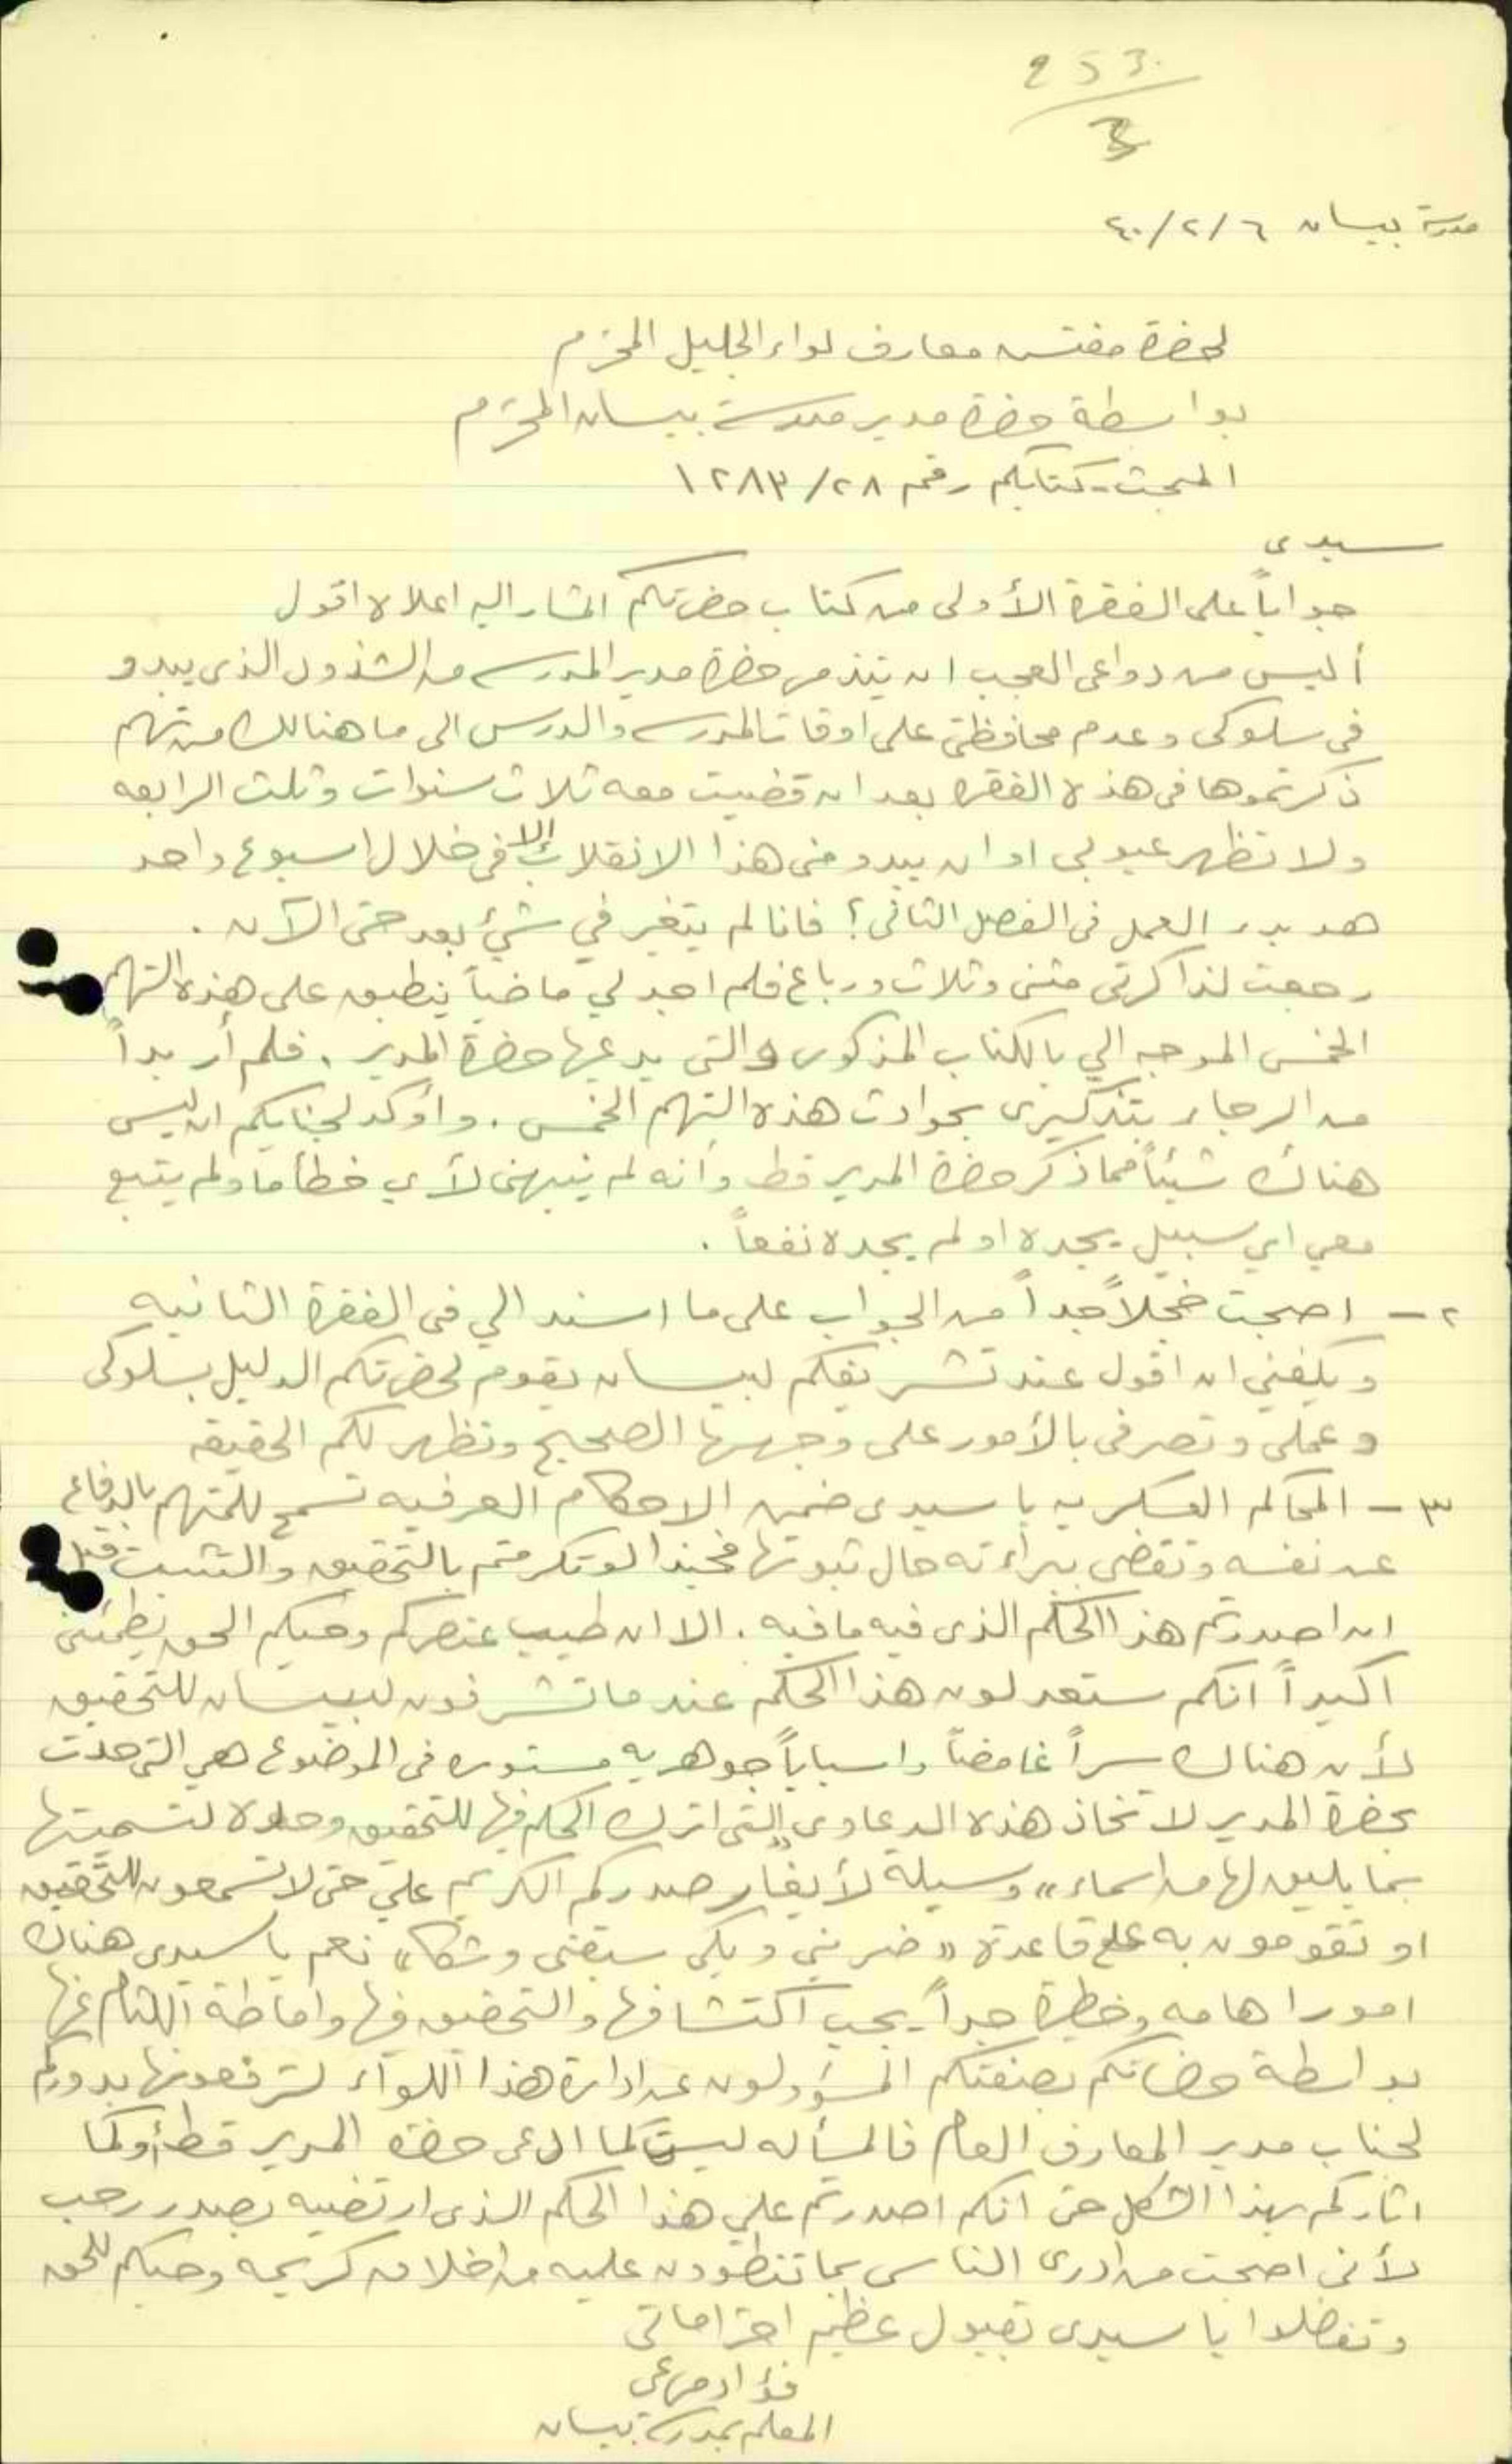 253
3
مدرسة بيسان ٦/٢/٤٠
لحضرة مفتش معارف لواء الجليل المحترم
بواسطة حضرة مدير مدرسة بيسان المحترم
المبحث - كتابكم رقم ٢٨/١٢٨٣
سيدي
جواباً على الفقرة الأولى من كتاب حضرتكم المشار اليه اعلاه اقول
أليس من دواعي العجب ان يتذمر حضرة مدير المدرسه من الشذوذ الذي يبدو
في سلوكي وعدم محافظتي على اوقات المدرسه والدرس الى ما هنالك من تهم
ذكرتموها في هذه الفقره بعد ان قضيت معه ثلاث سنوات وثلث الرابعه
ولا تظهر عيوبي او ان يبدو مني هذا الانقلاب إلا في خلال اسبوع واحد
من بدء العمل في الفصل الثاني؟ فانا لم يتغير في شيئ بعد حتى الآن .
رجعت لذاكرتي مثنى وثلاث ورباع فلم اجد لي ماضياً ينطبق على هذه التهم
الخمس الموجه الي بالكتاب المذكور والتي يدعيها حضرة المدير . فلم أر بداً
من الرجاء بتذكيري بحوادث هذه التهم الخمس . وأوكد لجنابكم ان ليس
هناك شيئاً مما ذكر حضرة المدير قط وأنه لم ينبهني لأي خطأ ما ولم يتبع
معي اي سبيل يجده او لم يجده نفعاً .
٢ - اصبحت خجلاً جداً من الجواب على ما اسند الي في الفقرة الثانيه
ويكفني ان اقول عند تشريفكم لبيسان يقوم لحضرتكم الدليل بسلوكي
وعملي وتصرفي بالأمور على وجهها الصحيح وتظهر لكم الحقيقه
٣ - المحاكم العسكريه يا سيدي ضمن الاحكام العرفيه تسمح للمتهم بالدفاع
عن نفسه وتقضي ببراءته حال ثبوتها فحبذا لو تكرمتم بالتحقيق والتثبت قبل
ان اصدرتم هذا الحكم الذي فيه ما فيه . الا ان طيب عنصركم وحبكم الحق يطمئنني
اكيداً انكم ستعدلون هذا الحكم عندما تشرفون لبيسان للتحقيق
لأن هناك سراً غامضاً واسباباً جوهريه مستوره في الموضوع هي التي حدت
بحضرة المدير لاتخاذ هذه الدعاوي التي اترك الحكم فيها للتحقيق وحده لتسميتها
بما يليق لها من اسماء "وسيلة لأيغار صدركم الكريم علي حتى لا تسمعون للتحقيق
او تقومون به على قاعدة "ضربني وبكى سبقني وشكا" نعم يا سيدي هناك
امورا هامه وخطيرة جداً يجب اكتشافها والتحقيق فيها واماطة اللثام عنها
بواسطة حضراتكم بصفتكم المسؤولون عن ادارة هذا اللواء لترفعونها بدوركم
لجناب مدير المعارف العام فالمسأله ليست كما ادعى حضرة المدير قط أو كما
اثاركم بهذا الشكل حتى انكم اصدرتم علي هذا الحكم الذي ارتضيه بصدر رحب
لأني اصبحت من ادرى الناس بما تنطوون عليه من اخلاق كريمه وحبكم للحق
وتفضلوا يا سيدي بقبول عظيم احتراماتي
فؤاد مرعي
المعلم بمدرسة بيسان